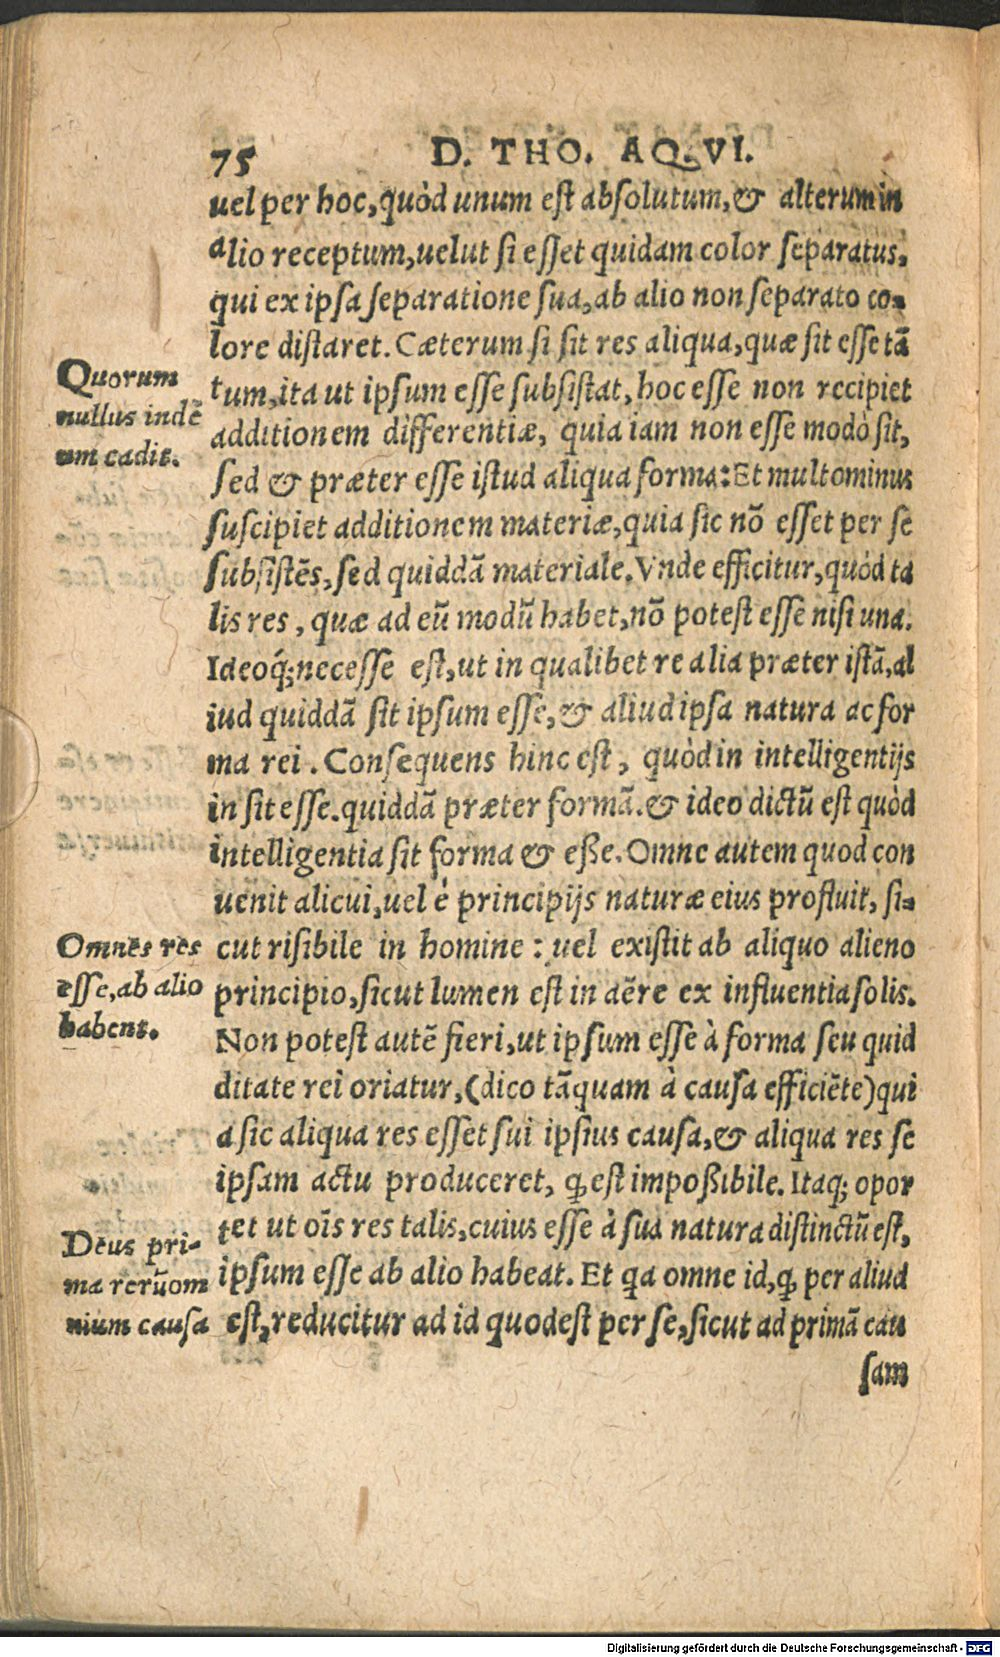 75 D. THO. AQ. VI.
uel per hoc, quòd unum est absolutum, & alterum in
alio receptum, uelut si esset quidam color separatus,
qui ex ipsa separatione sua, ab alio non separato co-
lore distaret. Cæterum si sit res aliqua, quæ sit esse tã
tum, ita ut ipsum esse subsistat, hoc esse non recipiet
additionem differentiæ, quia iam non esse modò sit,
sed & præter esse istud aliqua forma: Et multominus
suscipiet additionem materiæ, quia sic nõ esset per se
subsistẽs, sed quiddã materiale. Vnde efficitur, quòd ta
lis res, quæ ad eũ modũ habet, nõ potest esse nisi una.
Ideoq́; necesse est, ut in qualibet re alia præter istã, al
iud quiddã sit ipsum esse, & aliud ipsa natura ac for
ma rei. Consequens hinc est, quòd in intelligentijs
in sit esse. quiddã præter formã. & ideo dictũ est quòd
intelligentia sit forma & eße. Omne autem quod con
uenit alicui, uel è principijs naturæ eius profluit, si-
cut risibile in homine: uel existit ab aliquo alieno
principio, sicut lumen est in aëre ex influentia solis.
Non potest autẽ fieri, ut ipsum esse à forma seu quid
ditate rei oriatur, (dico tãquam à causa efficiẽte) qui
a sic aliqua res esset sui ipsius causa, & aliqua res se
ipsam actu produceret, ꝙ est impoßibile. Itaq; opor
tet ut oĩs res talis, cuius esse à sua natura distinctũ est,
ipsum esse ab alio habeat. Et qa omne id, ꝙ per aliud
est, reducitur ad id quod est per se, sicut ad primã cau
sam
Quorum
nullus indẽ
um cadit.
Omnes res
esse, ab alio
habent.
Deus pri-
ma rerũ om
nium causa
Digitalisierung gefördert durch die Deutsche Forschungsgemeinschaft - DFG